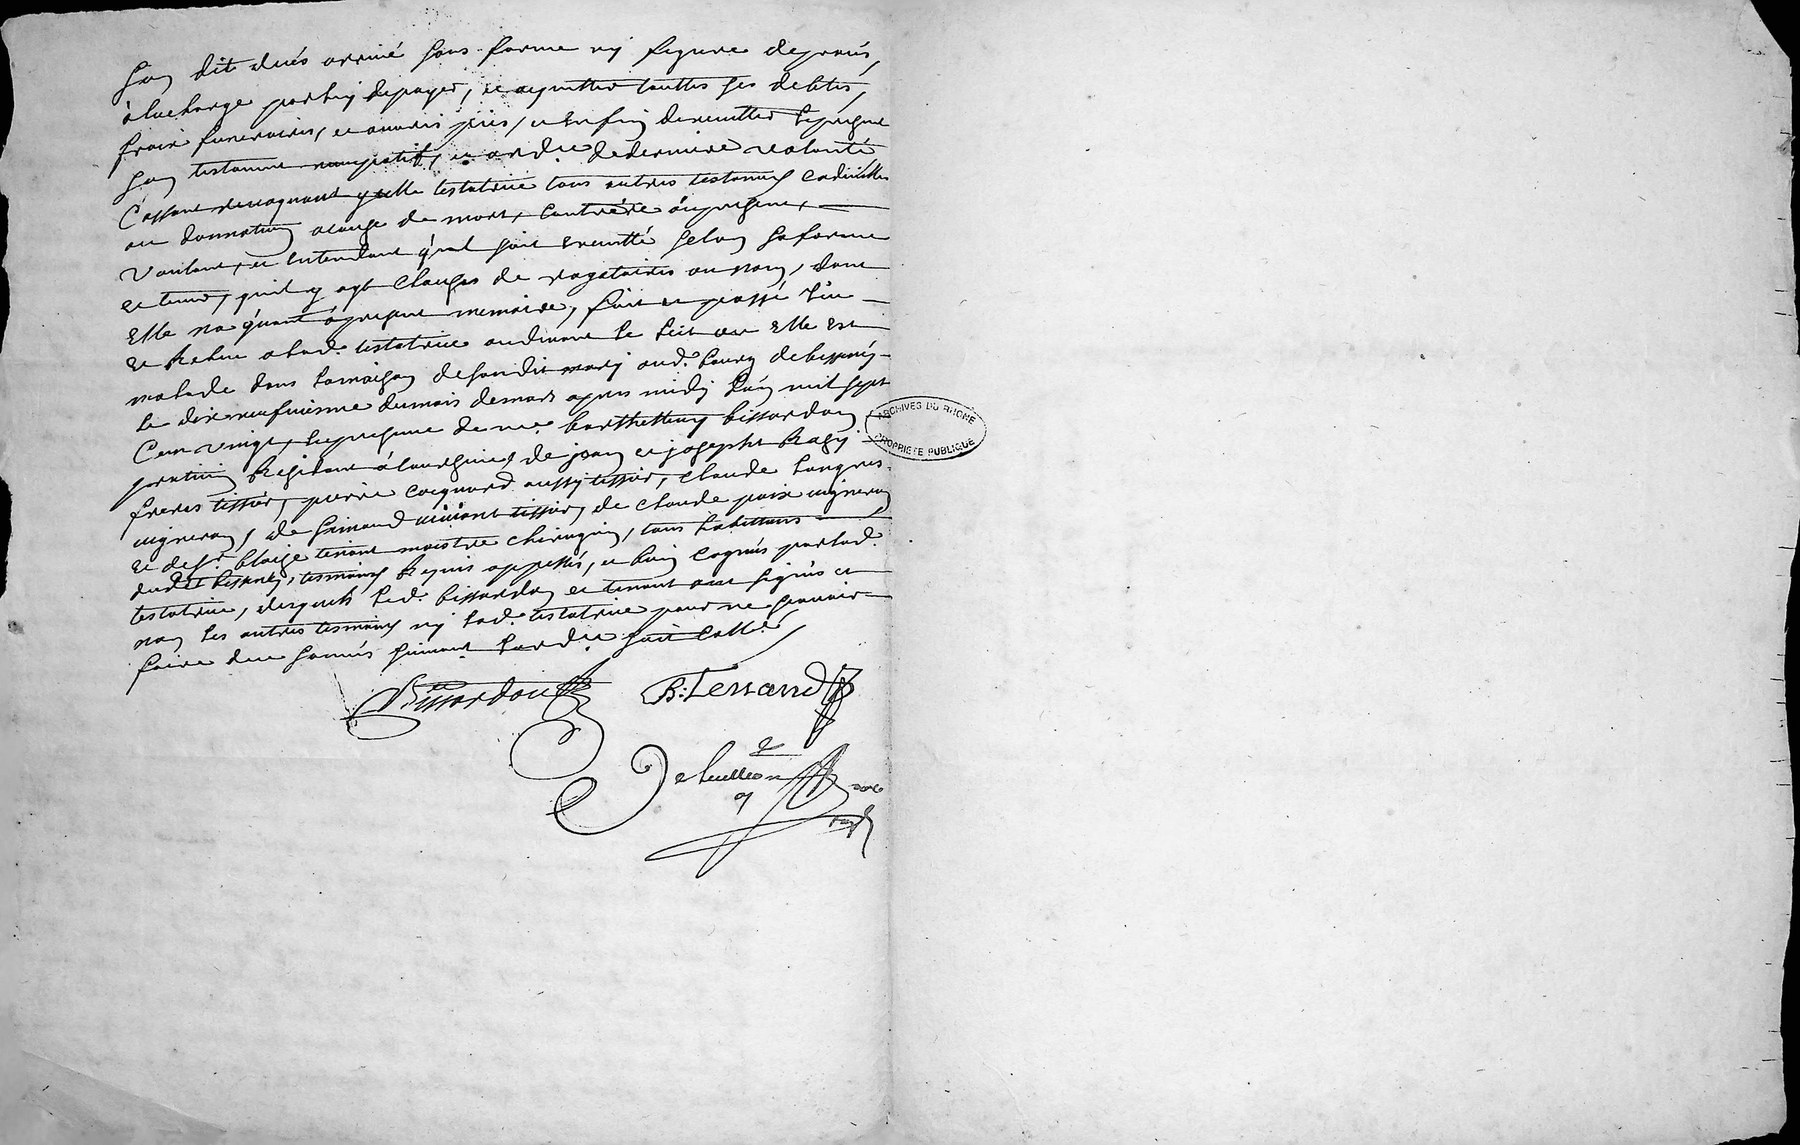 son dit deces arrivé sans forme ny figure de procés,
a la charge par luy de payer, et acquitter touttes ses debtes,
fraix funeraires, et œuvres pies, et enfin d'executter le present
son testament noncupatif, et ord.re de derniere volonté
Cassant revoquant ycelle testatrice tous autres testamens codicilles
ou donnation a cause de mort, contraire au present,
Voulant, et entendant q'uil soit executté selon sa forme
et teneur, quil y ayt Clauses derogatoires ou non, dont
Elle na q'uant á present memoire, fait et passé leu
et Releu a lad. testatrice au devant le lit ou elle est
malade dans la maison de son dit mary aud. bourg de bessenay
le dix neufviesme du mois de mars apres midy l'an mil sept
Cent vingt, en presence de me barthellemy bissardon
praticien Residant á courzieu, de jean et josepht Ragy
freres tissier, pierre coquard aussy tissier, claude
vigneron, de tissier, de claude vigneron
et de sr. blaise tenant maistre chirurgien, tous habittans
dud. bessenay, tesmoins Requis appellés, et bien cognus par lad.
testatrice, desquels led. bissardon et tenant ont signés et
non les autres tesmoins ny lad. testatrice pour ne sçavoir
faire de ce sommés suivant l'ord.ce soit Collé
Bissardon B: Tenand
ARCHIVES DU RHONE
PROPRIETE PUBLIQUE